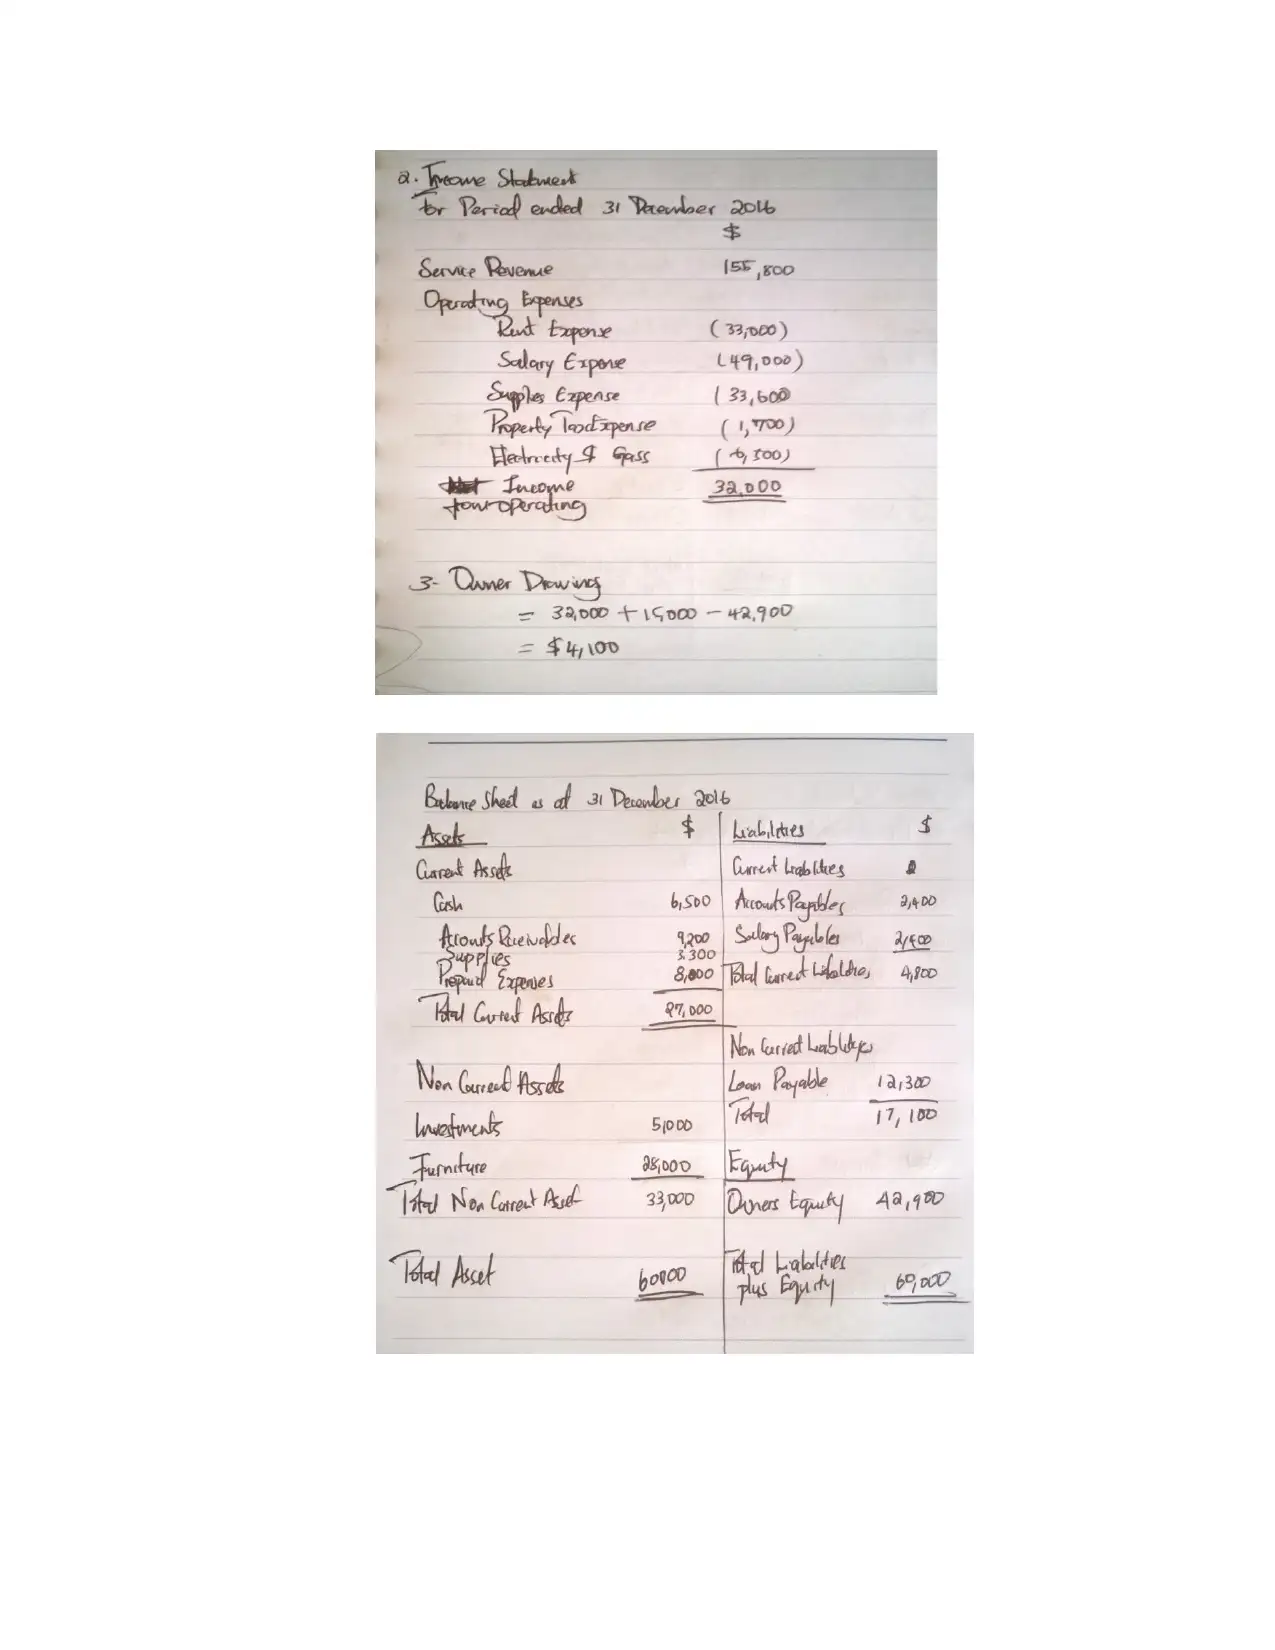 2. Income Statement
For Period ended 31 December 2016
$
Service Revenue 155,800
Operating Expenses
Rent Expense (33,000)
Salary Expense (49,000)
Supplies Expense (33,600
Property Tax Expense (1,700)
Electricity & Gass (6,500)
Income 32,000
from operating
3- Owner Drawings
= 32,000 + 15,000 - 42,900
= $4,100
Balance Sheet as at 31 December 2016
Assets $ Liabilities $
Current Assets Current Liabilities
Cash 6,500 Accounts Payables 2,400
Accounts Receivables 9,200 Salary Payables 2,400
Supplies 3,300
Prepaid Expenses 8,000 Total Current Liabilities 4,800
Total Current Assets 27,000
Non Current Liabilities
Non Current Assets Loan Payable 12,300
Investments 5,000 Total 17,100
Furniture 28,000 Equity
Total Non Current Asset 33,000 Owners Equity 42,900
Total Asset 60000 Total Liabilities
plus Equity 60,000